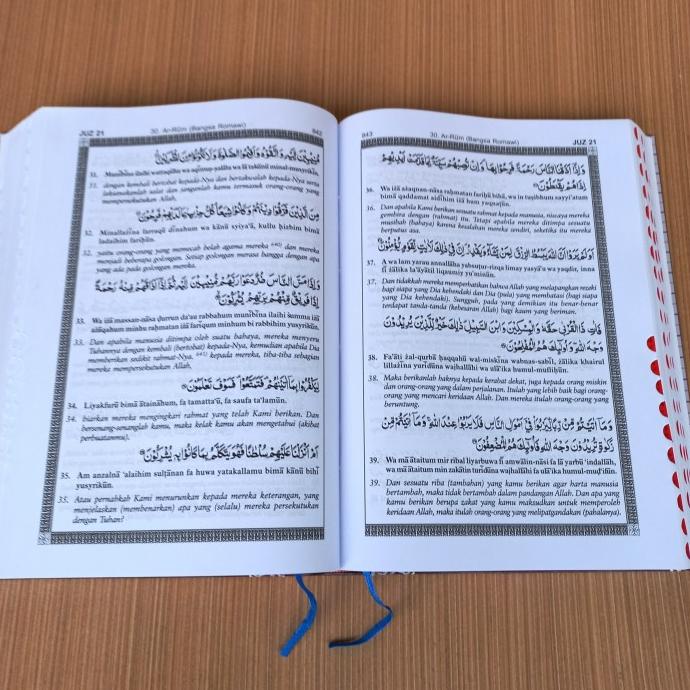 JUZ 21 30. Ar-Rūm (Bangsa Romawi) 842
مُنِيبِينَ إِلَيْهِ وَاتَّقُوهُ وَأَقِيمُوا الصَّلَاةَ وَلَا تَكُونُوا مِنَ الْمُشْرِكِينَ
31. Munībīna ilaihi wattaqūhu wa aqīmuṣ-ṣalāta wa lā takūnū minal-musyrikīn,
31. dengan kembali bertobat kepada-Nya dan bertakwalah kepada-Nya serta
laksanakanlah salat dan janganlah kamu termasuk orang-orang yang
mempersekutukan Allah,
مِنَ الَّذِينَ فَرَّقُوا دِينَهُمْ وَكَانُوا شِيَعًا كُلُّ حِزْبٍ بِمَا لَدَيْهِمْ فَرِحُونَ
32. Minallażīna farraqū dīnahum wa kānū syiya'ā, kullu ḥizbim bimā
ladaihim fariḥūn.
32. yaitu orang-orang yang memecah belah agama mereka dan mereka
menjadi beberapa golongan. Setiap golongan merasa bangga dengan apa
yang ada pada golongan mereka.
وَإِذَا مَسَّ النَّاسَ ضُرٌّ دَعَوْا رَبَّهُمْ مُنِيبِينَ إِلَيْهِ ثُمَّ إِذَا أَذَاقَهُمْ مِنْهُ رَحْمَةً
إِذَا فَرِيقٌ مِنْهُمْ بِرَبِّهِمْ يُشْرِكُونَ
33. Wa iżā massan-nāsa ḍurrun da'au rabbahum munībīna ilaihi ṡumma iżā
ażāqahum minhu raḥmatan iżā farīqum minhum bi rabbihim yusyrikūn,
33. Dan apabila manusia ditimpa oleh suatu bahaya, mereka menyeru
Tuhannya dengan kembali (bertobat) kepada-Nya, kemudian apabila Dia
memberikan sedikit rahmat-Nya kepada mereka, tiba-tiba sebagian
mereka mempersekutukan Allah.
لِيَكْفُرُوا بِمَا آتَيْنَاهُمْ فَتَمَتَّعُوا فَسَوْفَ تَعْلَمُونَ
34. Liyakfurū bimā ātaināhum, fa tamatta'ū, fa saufa ta'lamūn.
34. biarkan mereka mengingkari rahmat yang telah Kami berikan. Dan
bersenang-senanglah kamu, maka kelak kamu akan mengetahui (akibat
perbuatanmu).
أَمْ أَنْزَلْنَا عَلَيْهِمْ سُلْطَانًا فَهُوَ يَتَكَلَّمُ بِمَا كَانُوا بِهِ يُشْرِكُونَ
35. Am anzalnā 'alaihim sulṭānan fa huwa yatakallamu bimā kānū bihī
yusyrikūn.
35. Atau pernahkah Kami menurunkan kepada mereka keterangan, yang
menjelaskan (membenarkan) apa yang (selalu) mereka persekutukan
dengan Tuhan?
843 30. Ar-Rūm (Bangsa Romawi) JUZ 21
وَإِذَا أَذَقْنَا النَّاسَ رَحْمَةً فَرِحُوا بِهَا وَإِنْ تُصِبْهُمْ سَيِّئَةٌ بِمَا قَدَّمَتْ أَيْدِيهِمْ
إِذَا هُمْ يَقْنَطُونَ
36. Wa iżā ażaqnan-nāsa raḥmatan fariḥū bihā, wa in tuṣibhum sayyi'atum
bimā qaddamat aidīhim iżā hum yaqnaṭūn.
36. Dan apabila Kami berikan sesuatu rahmat kepada manusia, niscaya mereka
gembira dengan (rahmat) itu. Tetapi apabila mereka ditimpa sesuatu
musibah (bahaya) karena kesalahan mereka sendiri, seketika itu mereka
berputus asa.
أَوَلَمْ يَرَوْا أَنَّ اللَّهَ يَبْسُطُ الرِّزْقَ لِمَنْ يَشَاءُ وَيَقْدِرُ إِنَّ فِي ذَلِكَ لَآيَاتٍ لِقَوْمٍ يُؤْمِنُونَ
37. A wa lam yarau annallāha yabsuṭur-rizqa limay yasyā'u wa yaqdir, inna
fī żālika la'āyātil liqaumiy yu'minūn.
37. Dan tidakkah mereka memperhatikan bahwa Allah yang melapangkan rezeki
bagi siapa yang Dia kehendaki dan Dia (pula) yang membatasi (bagi siapa
yang Dia kehendaki). Sungguh, pada yang demikian itu benar-benar
terdapat tanda-tanda (kebesaran Allah) bagi kaum yang beriman.
فَآتِ ذَا الْقُرْبَى حَقَّهُ وَالْمِسْكِينَ وَابْنَ السَّبِيلِ ذَلِكَ خَيْرٌ لِلَّذِينَ يُرِيدُونَ
وَجْهَ اللَّهِ وَأُولَئِكَ هُمُ الْمُفْلِحُونَ
38. Fa'āti żal-qurbā ḥaqqahū wal-miskīna wabnas-sabīl, żālika khairul
lillażīna yurīdūna wajhallāhi wa ulā'ika humul-mufliḥūn.
38. Maka berikanlah haknya kepada kerabat dekat, juga kepada orang miskin
dan orang-orang yang dalam perjalanan. Itulah yang lebih baik bagi orang-
orang yang mencari keridaan Allah. Dan mereka itulah orang-orang yang
beruntung.
وَمَا آتَيْتُمْ مِنْ رِبًا لِيَرْبُوَا فِي أَمْوَالِ النَّاسِ فَلَا يَرْبُو عِنْدَ اللَّهِ وَمَا آتَيْتُمْ مِنْ
زَكَاةٍ تُرِيدُونَ وَجْهَ اللَّهِ فَأُولَئِكَ هُمُ الْمُضْعِفُونَ
39. Wa mā ātaitum mir ribal liyarbuwa fī amwālin-nāsi fa lā yarbū 'indallāh,
wa mā ātaitum min zakātin turīdūna wajhallāhi fa ulā'ika humul-muḍ'ifūn.
39. Dan sesuatu riba (tambahan) yang kamu berikan agar harta manusia
bertambah, maka tidak bertambah dalam pandangan Allah. Dan apa yang
kamu berikan berupa zakat yang kamu maksudkan untuk memperoleh
keridaan Allah, maka itulah orang-orang yang melipatgandakan (pahalanya).